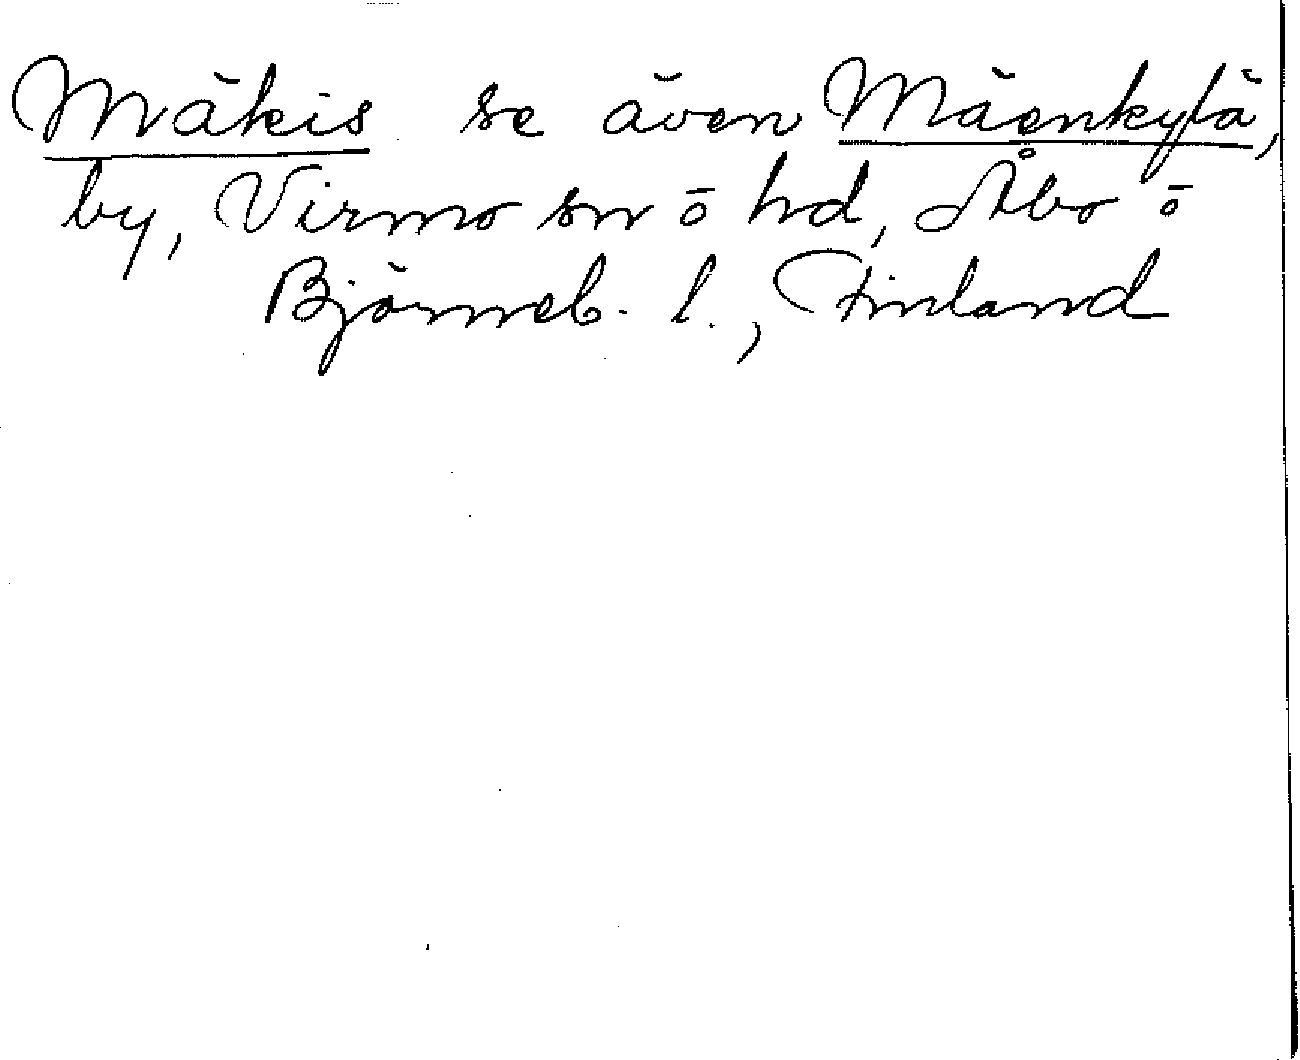 Mäkis se även Mäenkylä,
by, Virmo sn ō hd, Åbo ō
Björneb. l., Finland